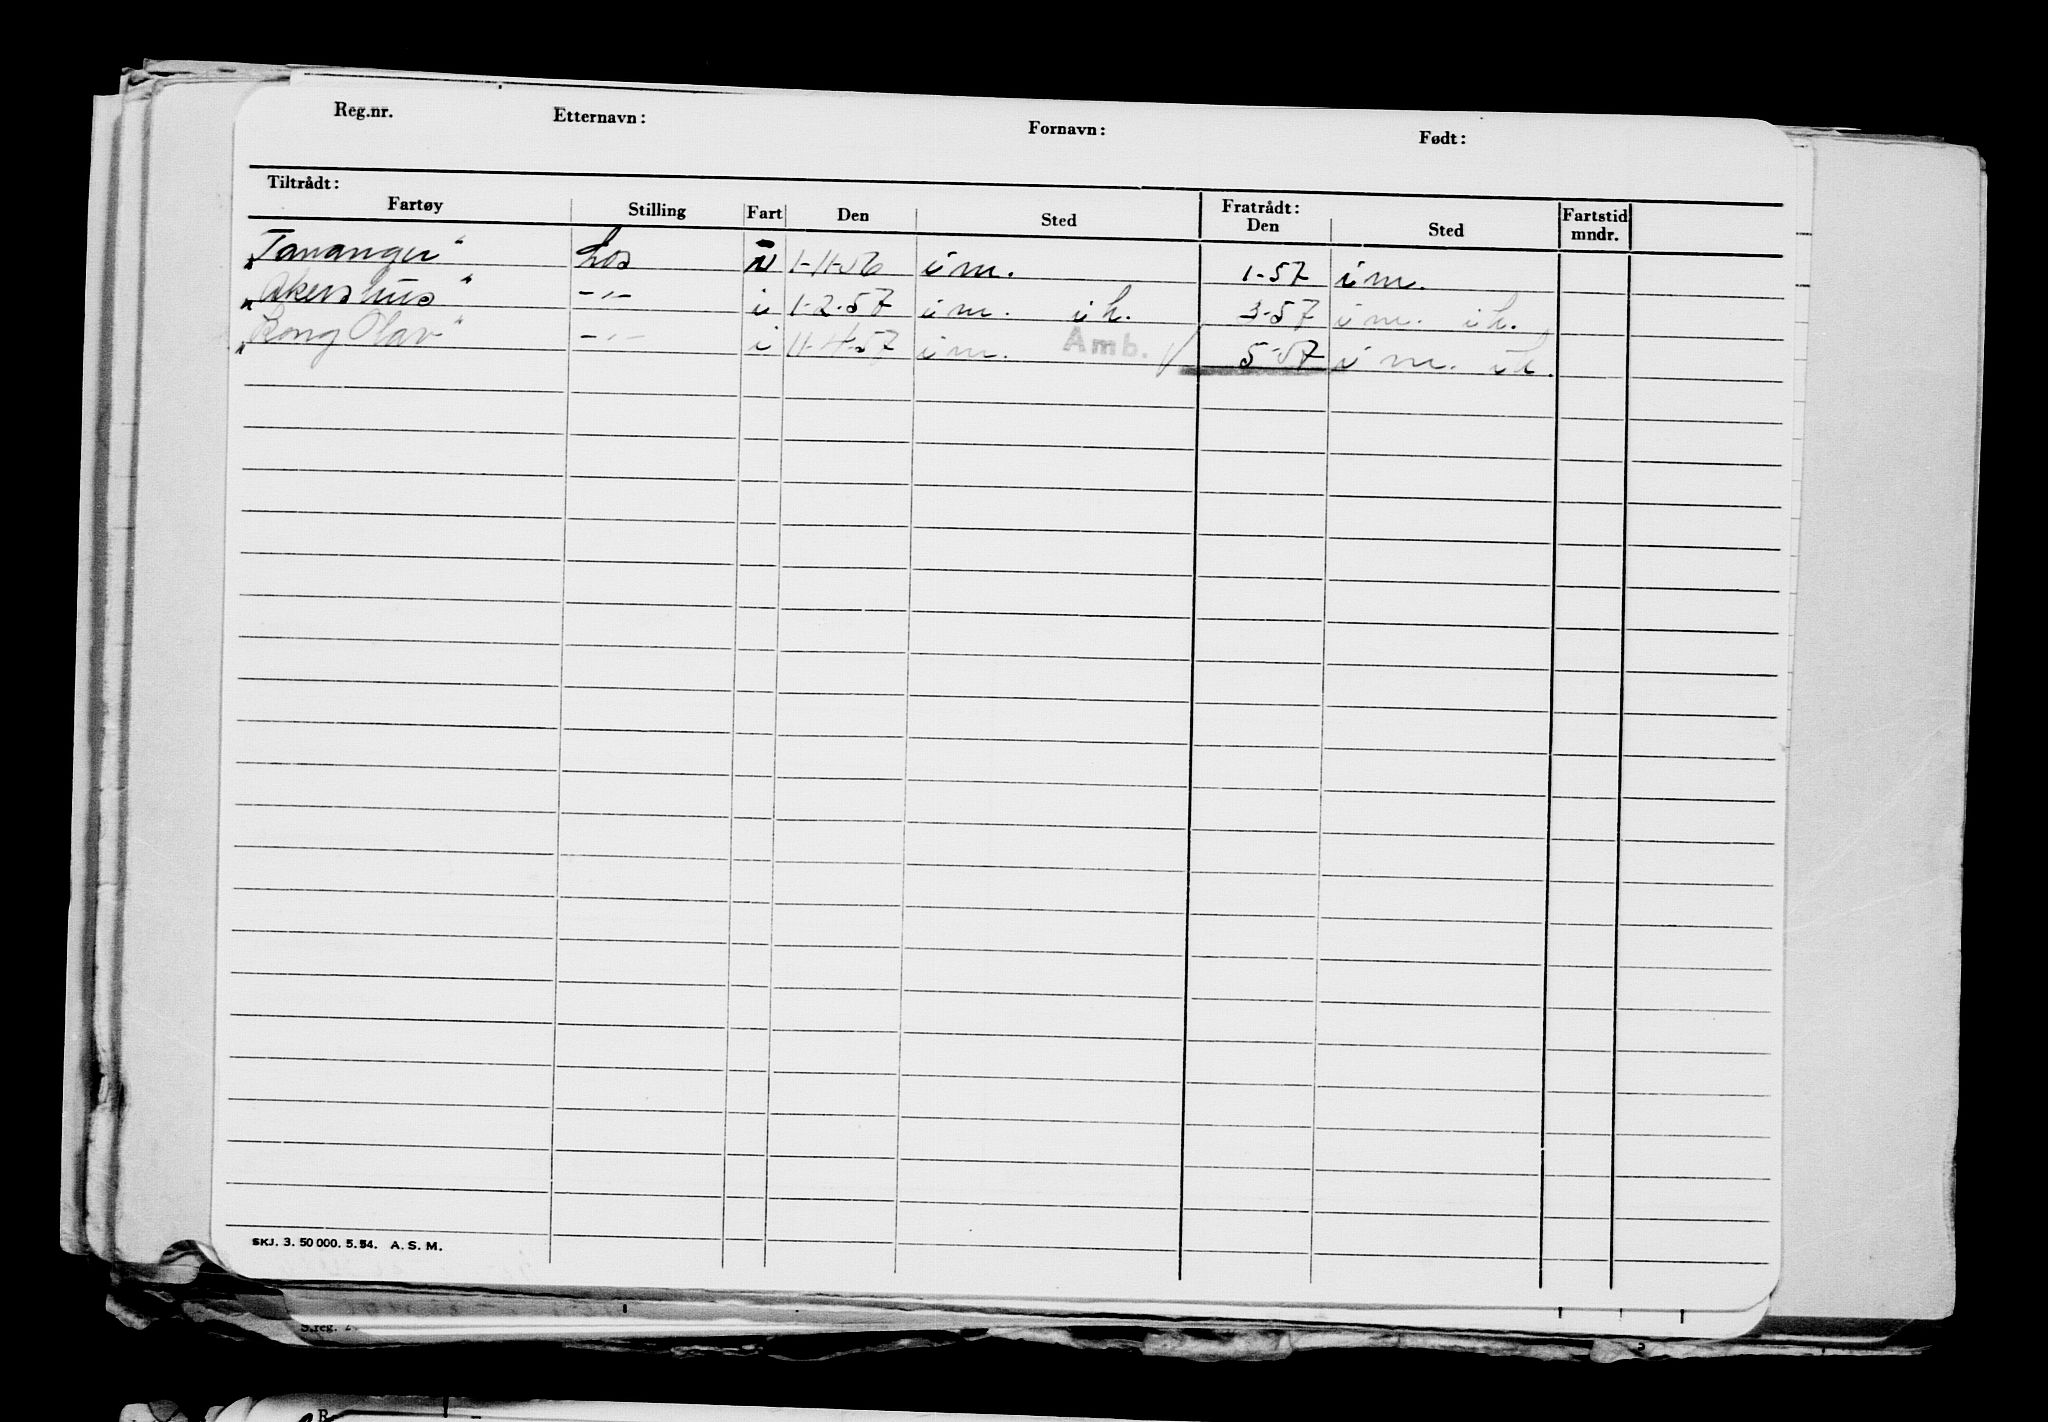 Reg.nr. Etternavn: Fornavn: Født:
Tiltrådt: Fratrådt:
Fartøy Stilling Fart Den Sted Den Sted Fartstid mndr.
"Tananger" Los N 1-11-56 i m. 1-57 i m.
"Akershus" -"- i 1-2-57 i m. i h. 3-57 i m. i h.
"Kong Olav" -"- i 11-4-57 i m. Amb. 5-57 i m. i h.
SKJ. 3. 50 000. 5. 54. A. S. M.
S.reg.